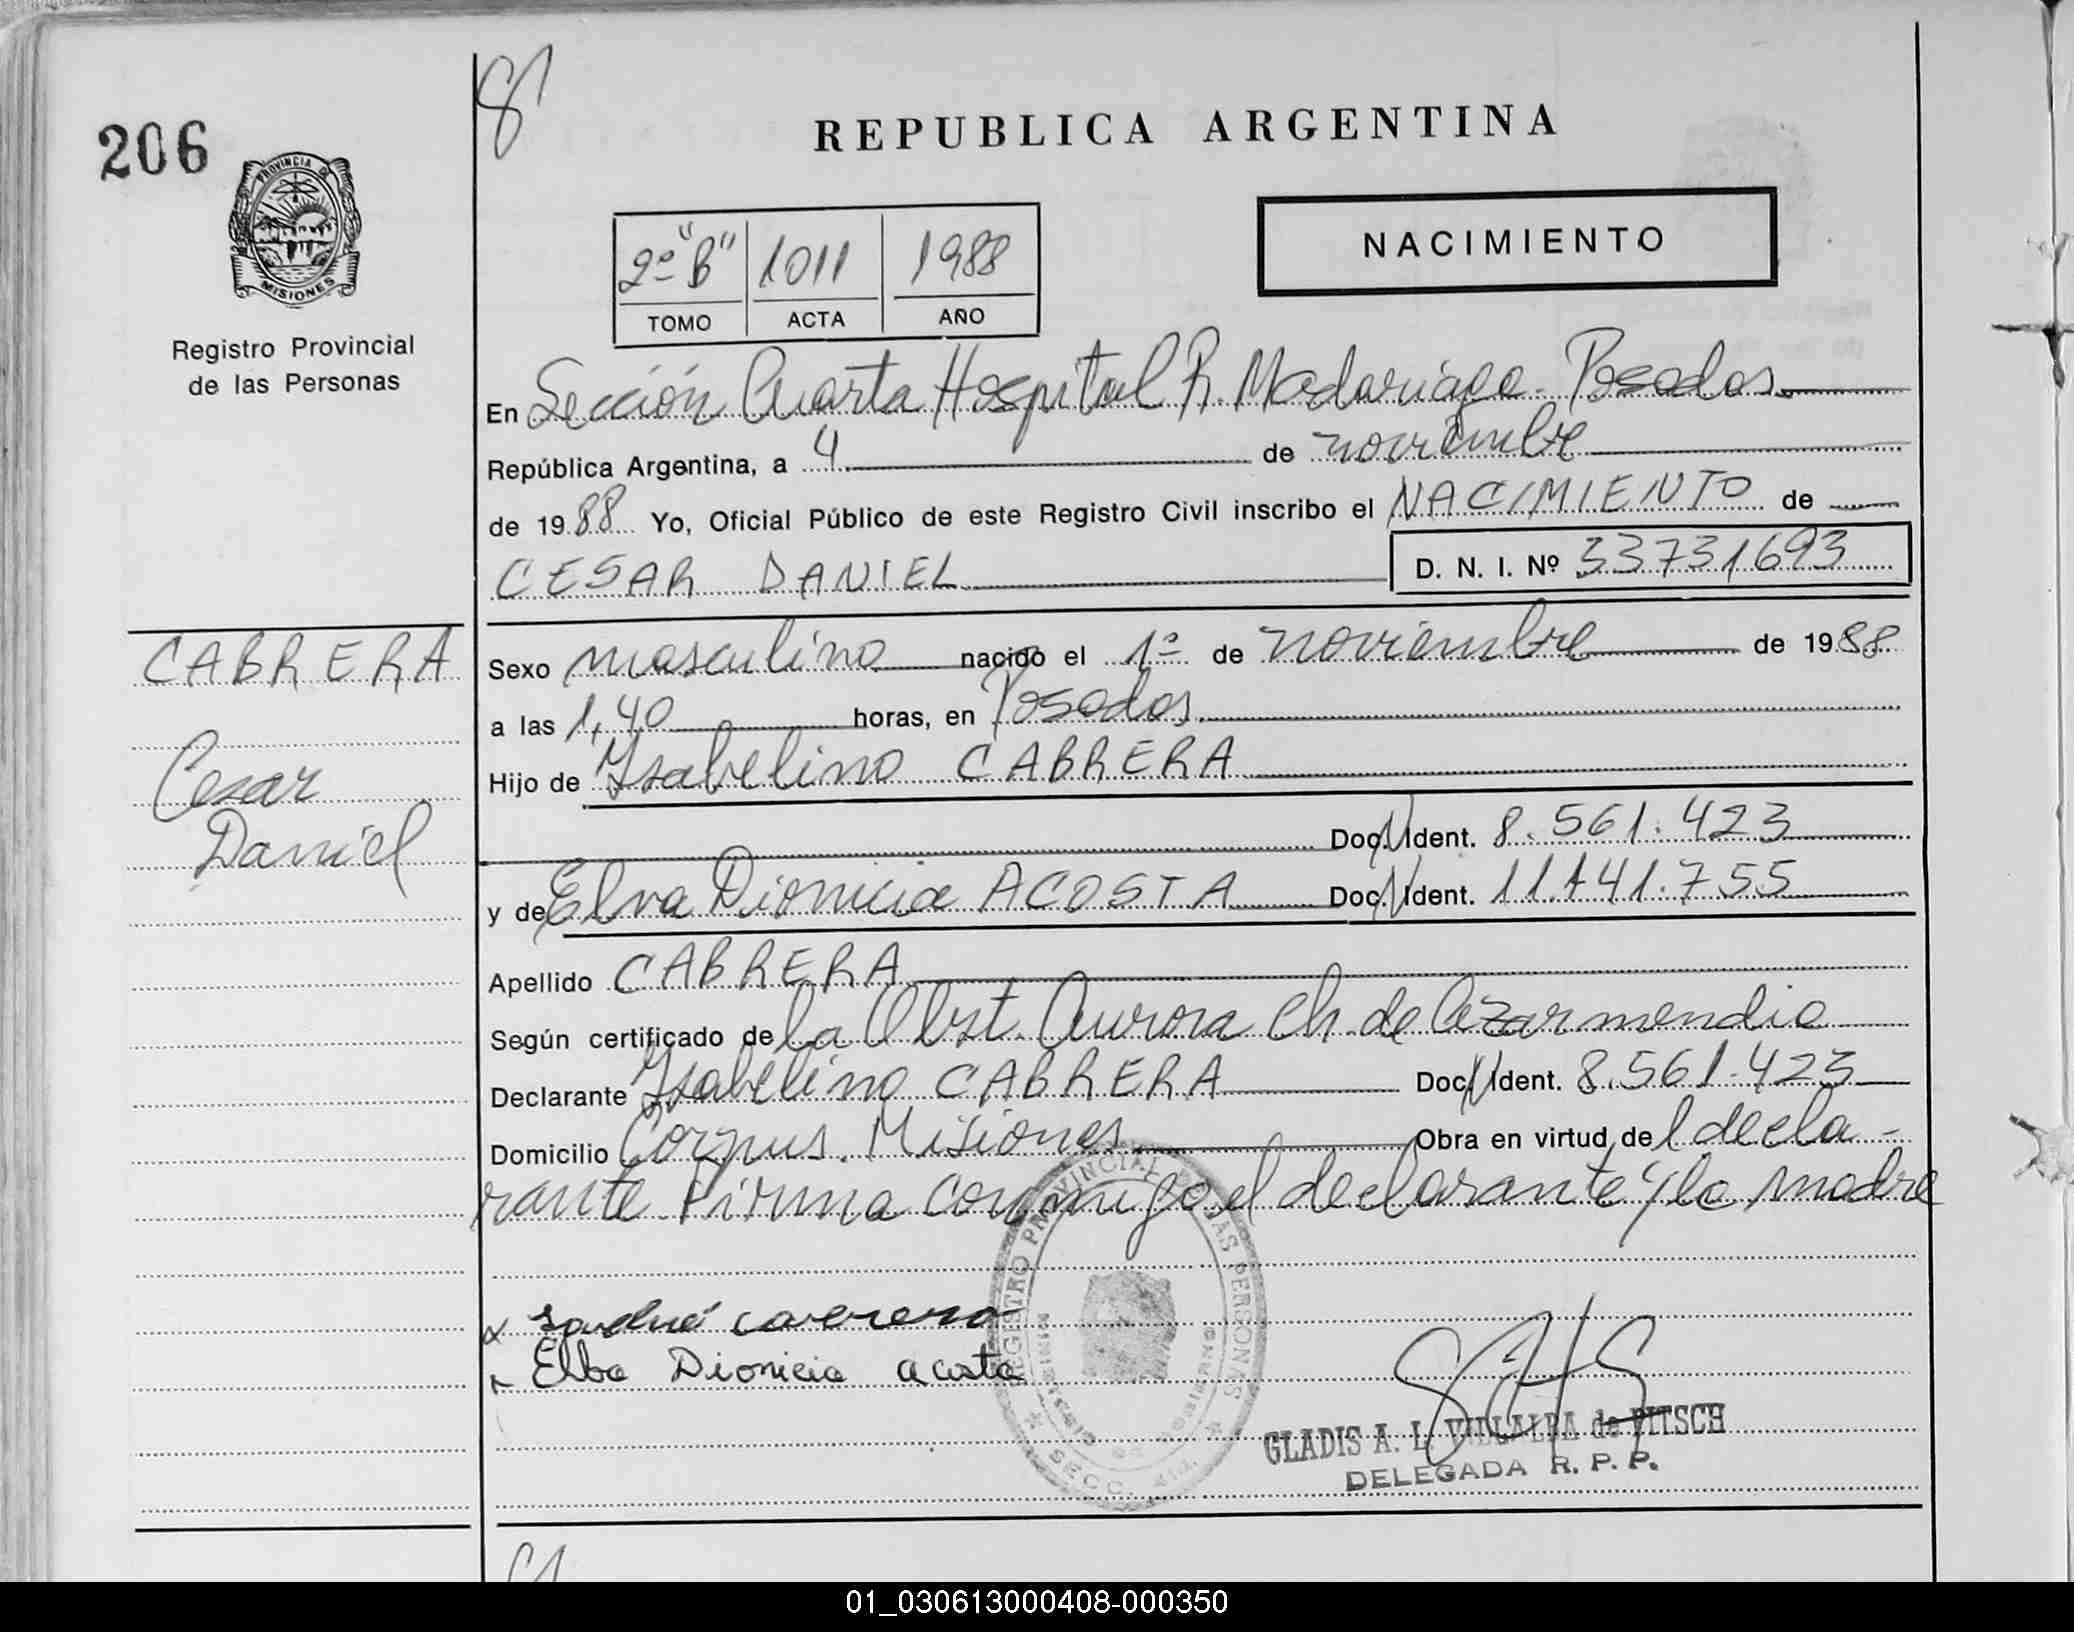 206
PROVINCIA DE
MISIONES
Registro Provincial
de las Personas
81
REPUBLICA ARGENTINA
2º "B" 1011 1988
TOMO ACTA AÑO
NACIMIENTO
En Sección Cuarta Hospital R. Madariaga - Posadas
República Argentina, a 4 de noviembre
de 1988 Yo, Oficial Público de este Registro Civil inscribo el NACIMIENTO de
CESAR DANIEL D. N. I. Nº 33731693
CABRERA
Cesar
Daniel
Sexo masculino nacido el 1º de noviembre de 1988
a las 1,40 horas, en Posadas
Hijo de Ysabelino CABRERA
Doc. Ident. 8.561.423
y de Elva Dionicia ACOSTA Doc. Ident. 11.141.755
Apellido CABRERA
Según certificado de la Obst. Aurora Ch. de Cezarmendia
Declarante Ysabelino CABRERA Doc. Ident. 8.561.423
Domicilio Corpus. Misiones Obra en virtud de l decla-
rante Firma conmigo el declarante y la madre
Elba Dionicia acosta
REGISTRO PROVINCIAL DE LAS PERSONAS
SECC. 4ta.
GLADIS A. L. VILLALBA de PITSCH
DELEGADA R. P. P.
01_030613000408-000350